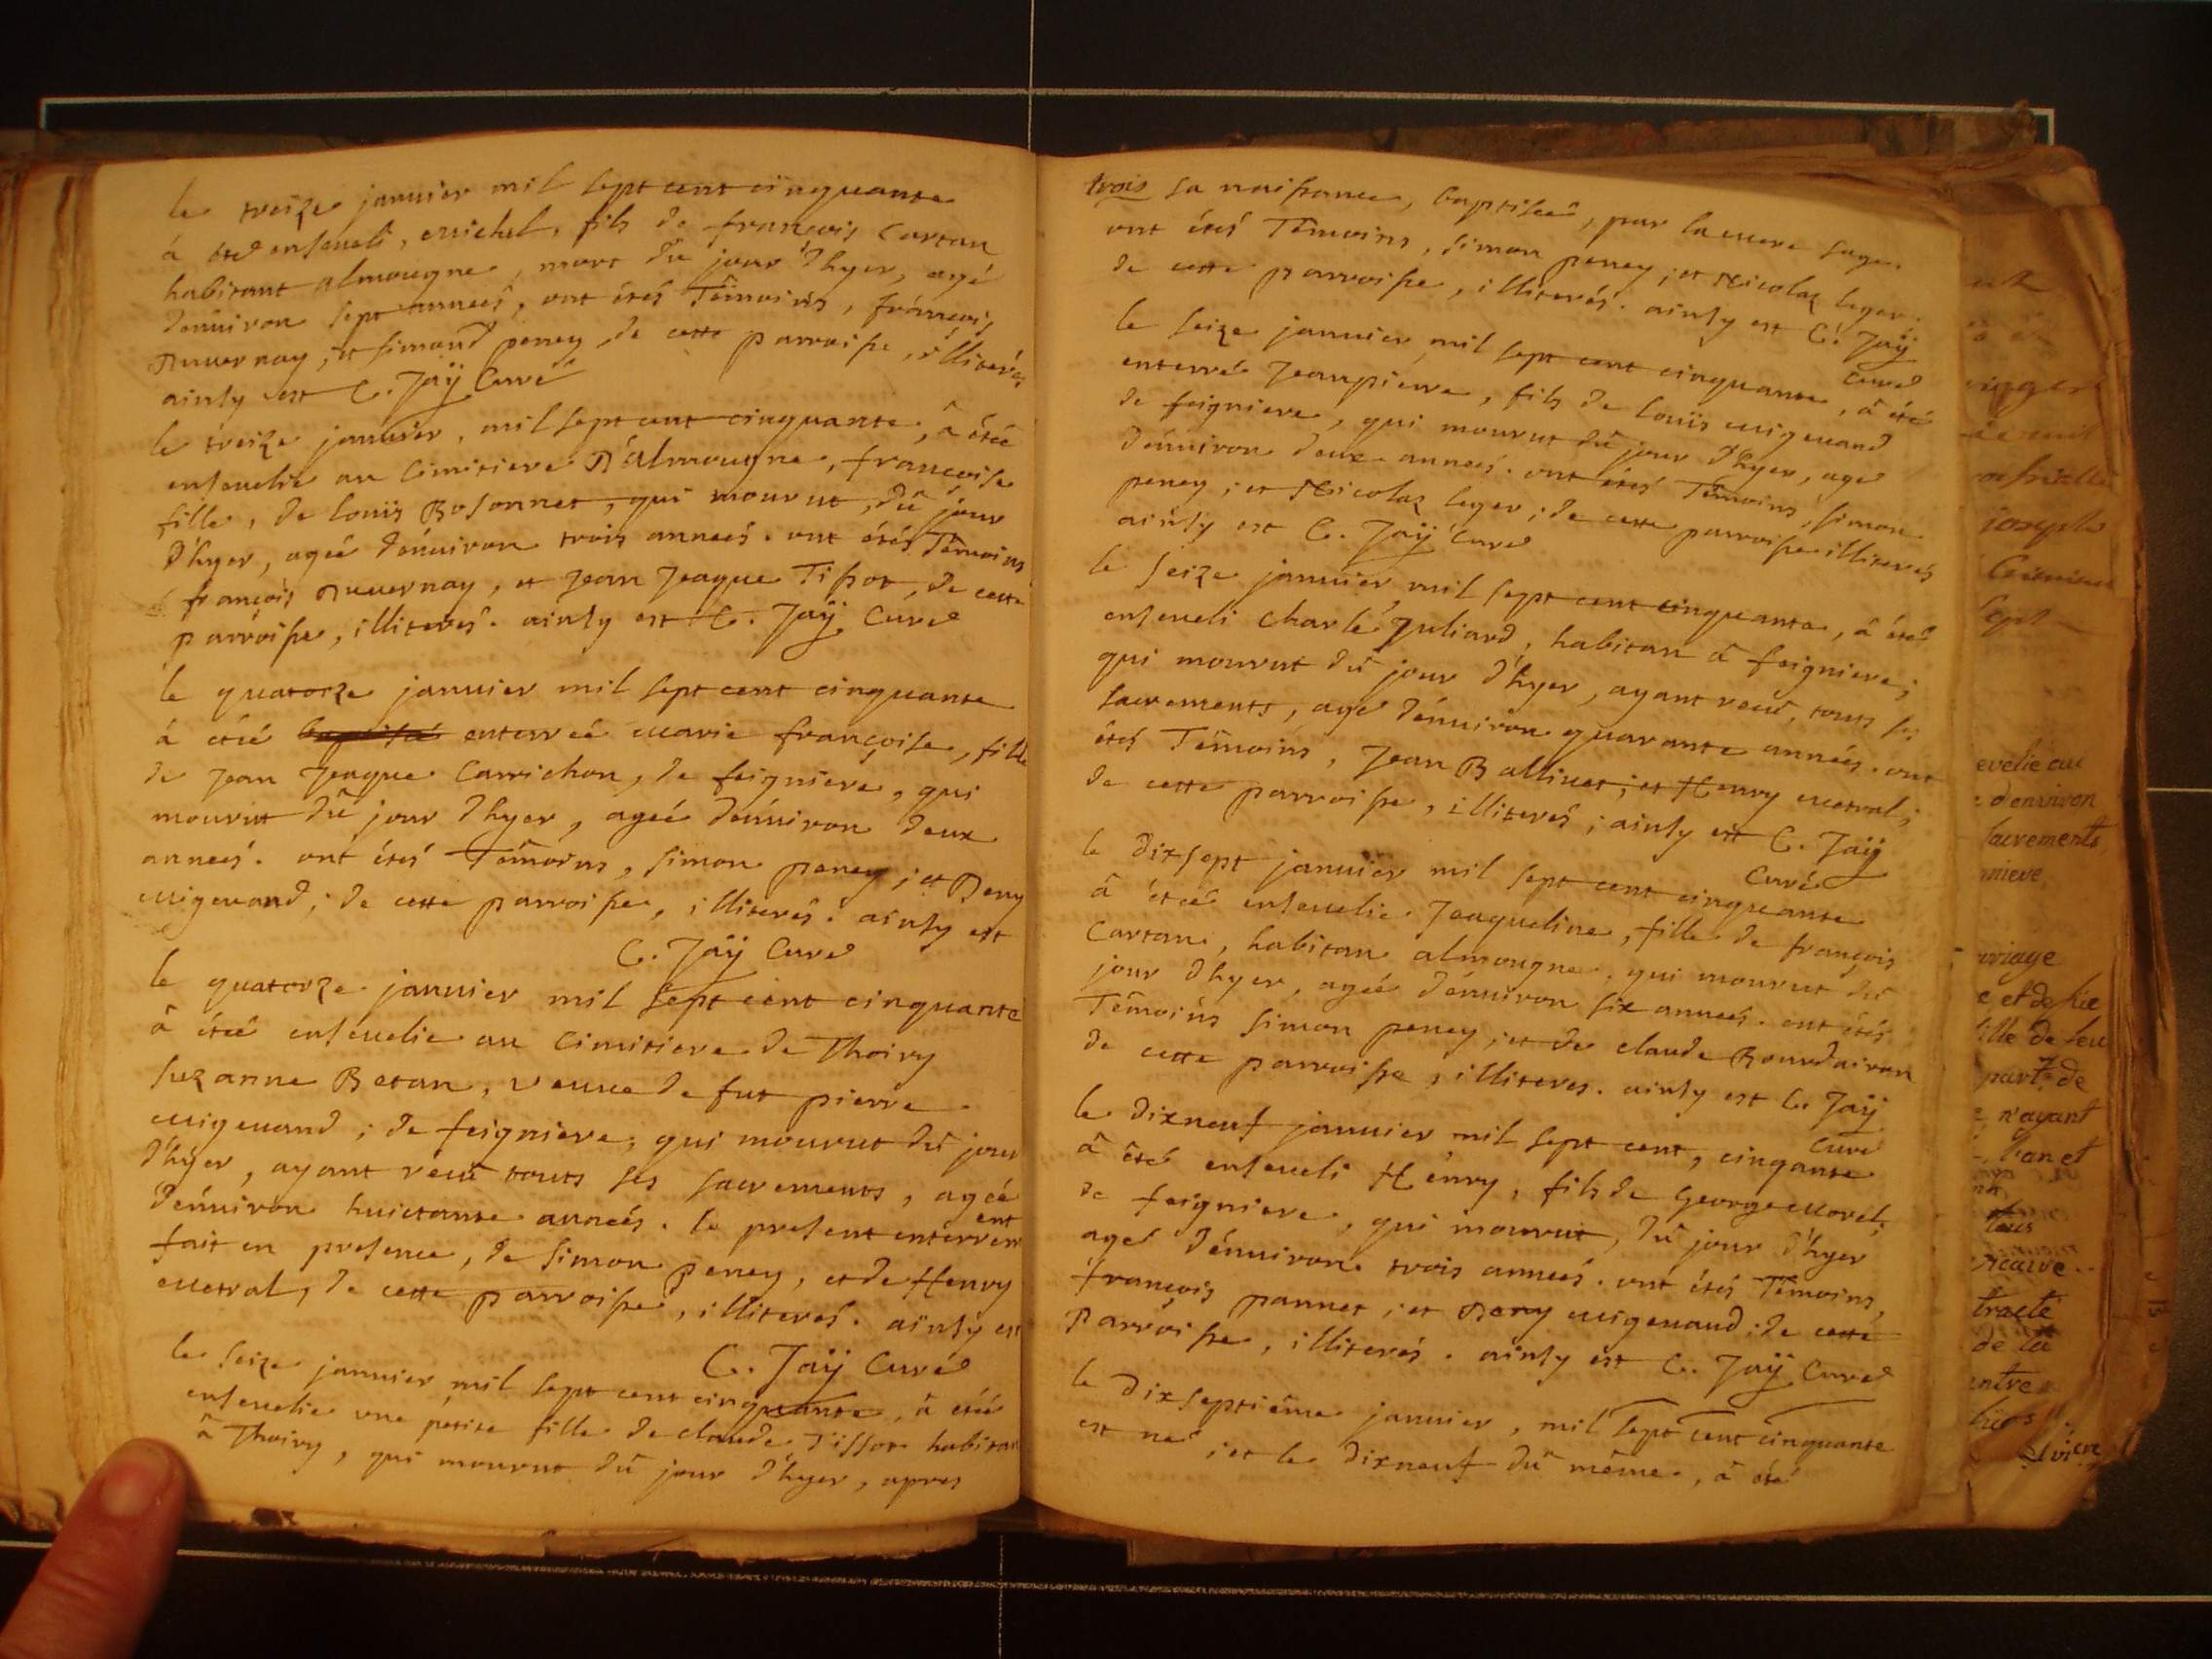 le treize janvier mil sept cent cinquante
à eté enseveli, michel, fils de françois Cartan
habitant almougne, mort du jour d'hyer, agé
d'énuiron sept années, ont étés Témoins, françois
Duuernay, et simond peney de cette parroisse, illiterés
ainsy est C. Jaÿ Curé
le treize januier, mil sept cent cinquante, à étéé
enseuelie au Cimitiere D'almougne, françoise
fille, de louïs Bosonnet, qui mourut, dû jour
d'hyer, ageé d'énuiron trois anneés. ont étés Témoins
françois Duuernay, et Jean Jeaque Tissot, de cette
parroisse, illiterés. ainsy est C. Jaÿ Curé
le quatorze januier mil sept cent cinquante
à étéé enterreé marie françoise, fille
de Jean Jeaque Carrichon, de feigniere, qui
mourut dû jour d'hyer, ageé d'énuiron deux
anneés. ont étés Témoins, simon peney ; et Deny
migeuand ; de cette parroisse, illiterés. ainsy est
C. Jaÿ Curé
le quatorze januier mil sept cent cinquante
à étéé enseuelie au Cimitiere de Thoiry
suzanne Betan, veuue de fut pierre
migeuand ; de feigniere, qui mourut dû jour
d'hyer, ayant reçû touts ses sacrements, ageé
d'énuiron huictante anneés. le present enterrem
ent
fait en presence, de simon peney, et de Henry
mestral, de cette parroisse, illiterés. ainsy est
C. Jaÿ Curé
le seize januier mil sept cent cinquante, à étéé
enseuelie une petite fille de claude Tissot habitan
à Thoiry, qui mourut dû jour d'hyer, apres
trois sa naissance, baptiseé, par la mere sage.
ont étés Témoins, simon peney ; et Nicolaz leger.
de cette parroisse, illiterés. ainsy est C. Jaÿ
Curé
le seize januier mil sept cent cinquante, à été
enterré Jeanpierre, fils de louïs migeuand
de feigniere, qui mourut dû jour d'hyer, agé
d'énuiron deux anneés. ont étés Témoins, simon
peney ; et Nicolaz leger ; de cette parroisse illiterés
ainsy est C. Jaÿ Curé
le seize januier mil sept cent cinquante, à été
enseueli charle Juliard, habitan à feigniere ;
qui mourut dû jour d'hyer, ayant reçû, touts ses
sacrements, agé d'énuiron quarante anneés. ont
étés Témoins, Jean Balliuet ; et Henry mestral ;
de cette parroisse, illiterés ; ainsy est C. Jaÿ
Curé
le dixsept januier mil sept cent cinquante
à étéé enseuelie Jeaqueline, fille de françois
Cartan, habitan almougne. qui mourut dû
jour d'hyer, ageé d'énuiron six anneés. ont étés
Témoins simon peney ; et de claude Bourdairon
de cette parroisse, illiterés. ainsy est C. Jaÿ
Curé
le dixneuf januier mil sept cent, cinqante
à été enseueli Henry, fils de George morel,
de feigniere, qui mourut, dû jour d'hyer
agé d'énuiron trois anneés. ont étés Témoins,
françois pannet ; et Deny migeuand ; de cette
Parroisse, illiterés. ainsy est C. Jaÿ Curé
le dixseptiême januier, mil sept cent cinquante
est né ; et le dixneuf dû même, à été
evelie au
d'environ
sacrements
nieve
uriage
e et de sie
fille de feu
part; de
n'ayant
tracte
de la
entre